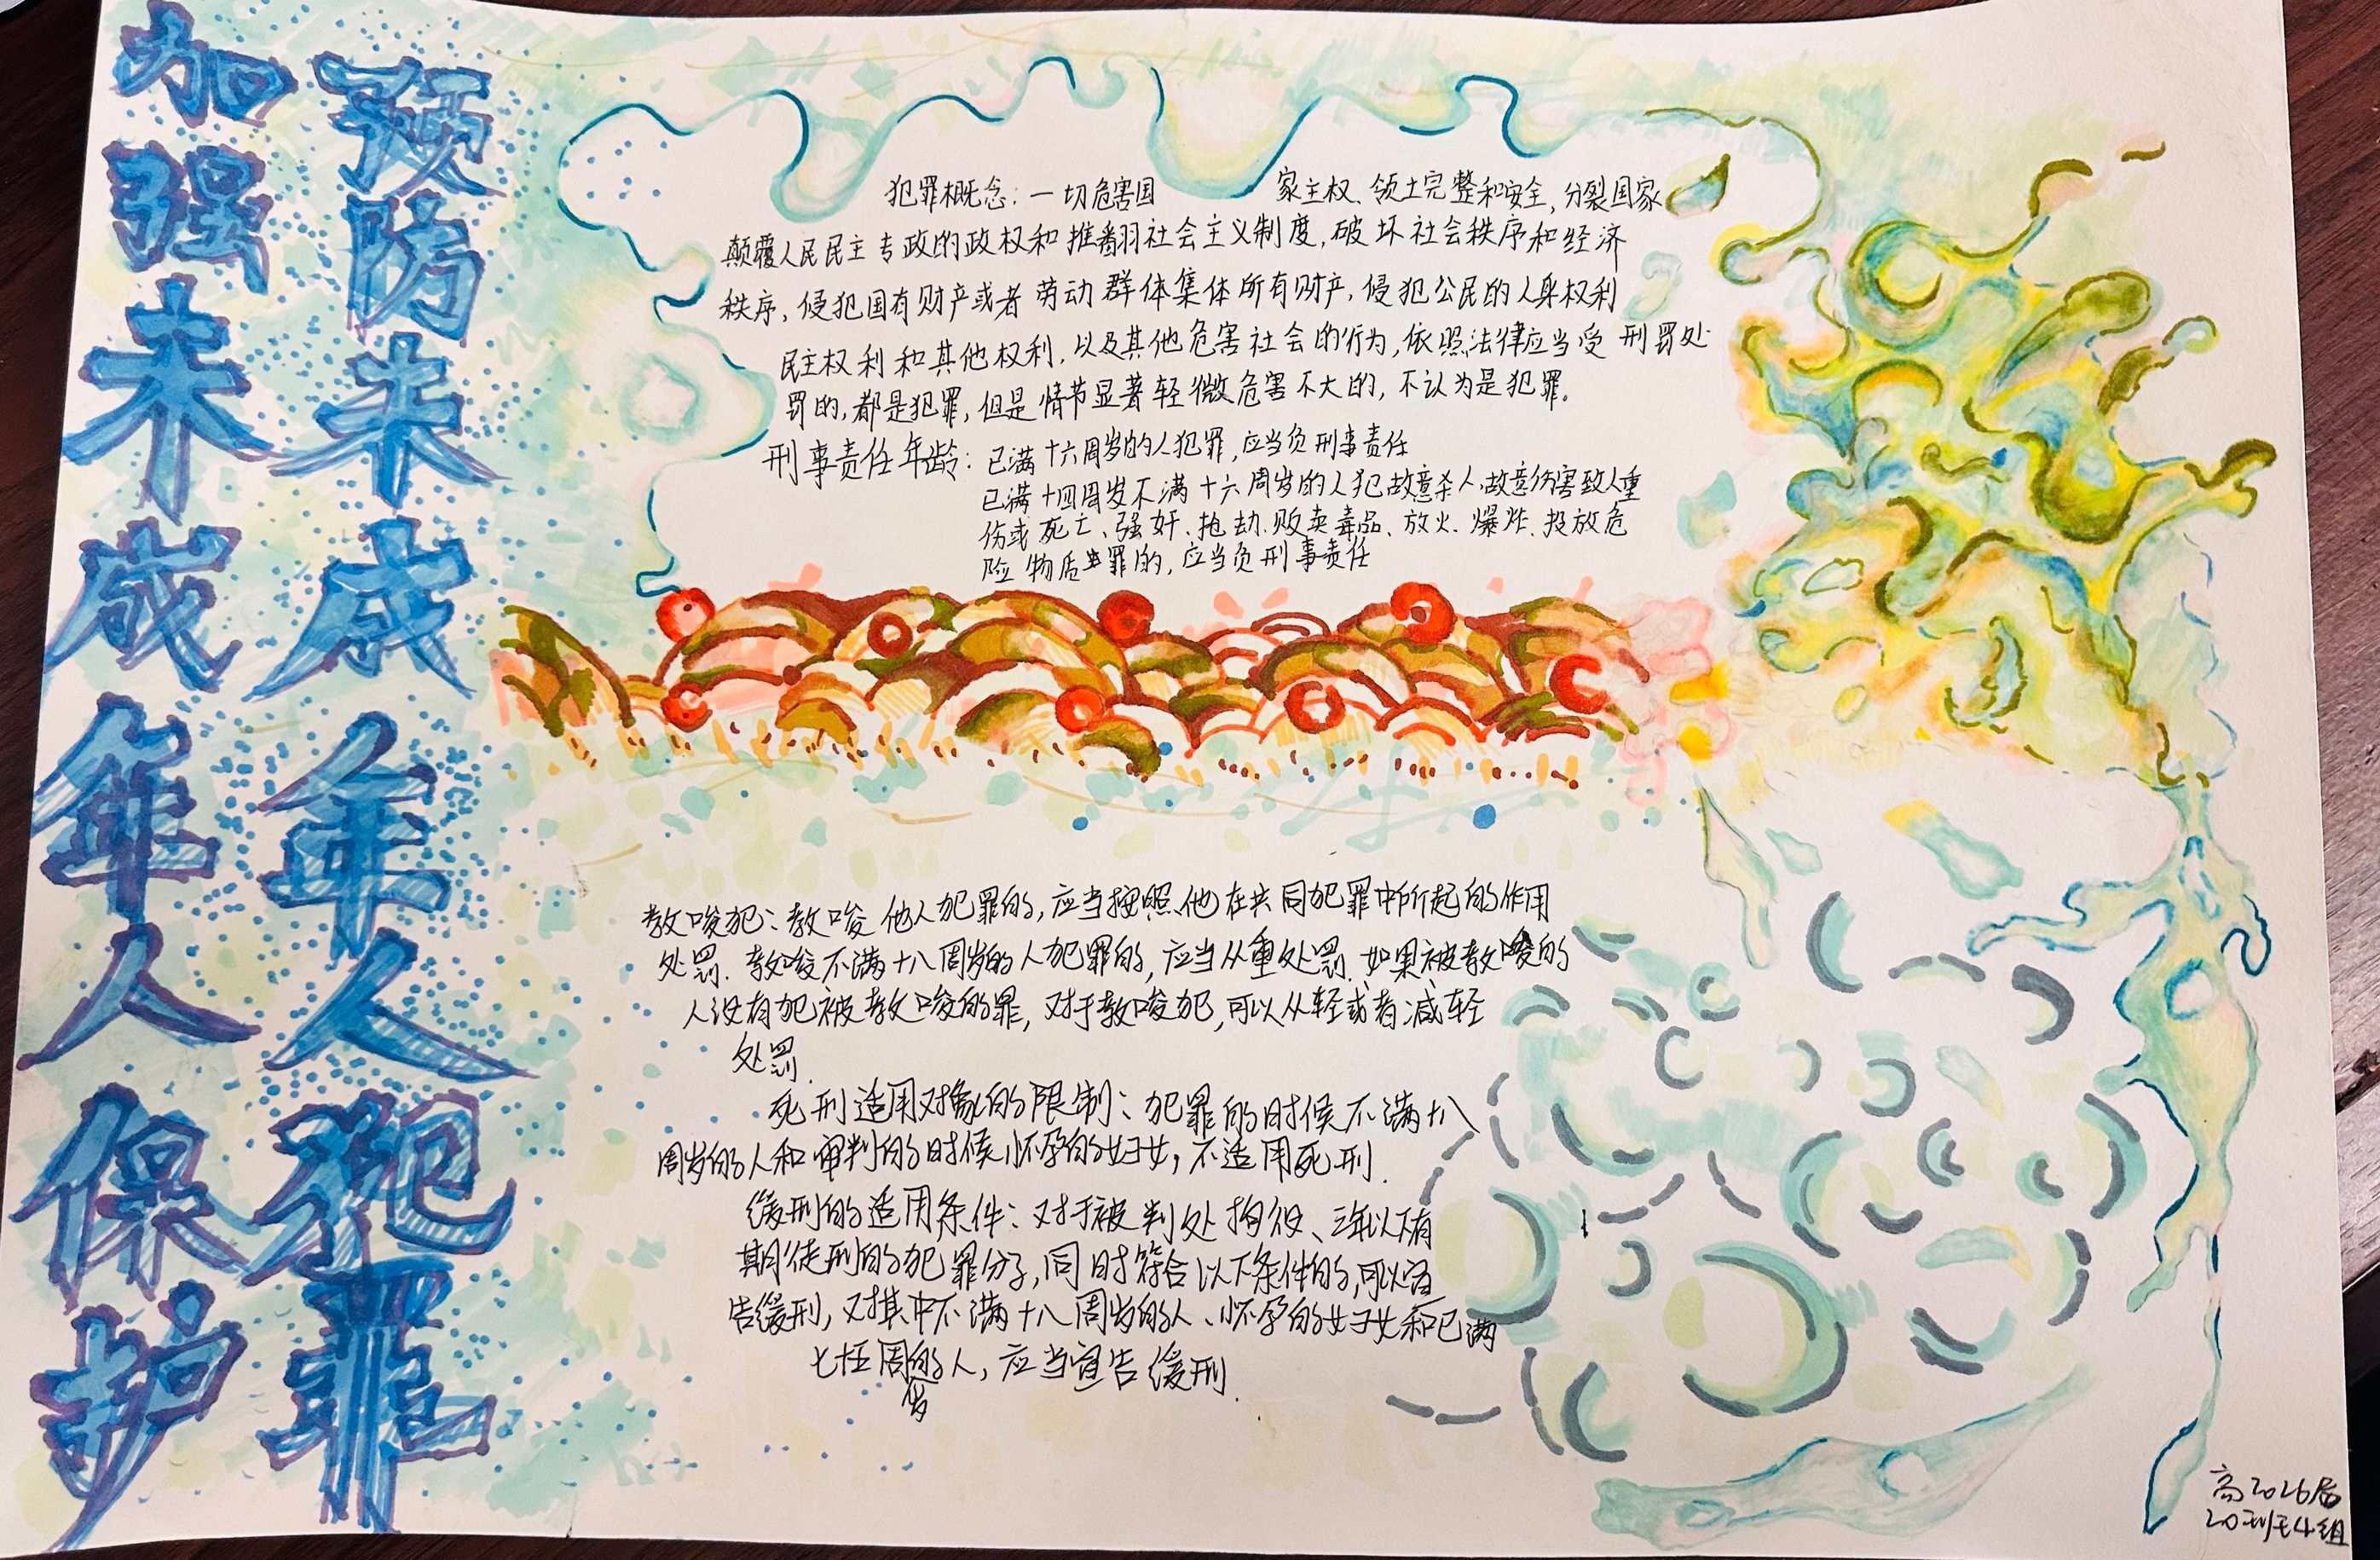 加强未成年人保护
预防未成年人犯罪
犯罪概念：一切危害国家主权、领土完整和安全，分裂国家
颠覆人民民主专政的政权和推翻社会主义制度，破坏社会秩序和经济
秩序，侵犯国有财产或者劳动群体集体所有财产，侵犯公民的人身权利
民主权利和其他权利，以及其他危害社会的行为，依照法律应当受刑罚处
罚的，都是犯罪，但是情节显著轻微危害不大的，不认为是犯罪。
刑事责任年龄：已满十六周岁的人犯罪，应当负刑事责任
已满十四周岁不满十六周岁的人犯故意杀人，故意伤害致人重
伤或死亡、强奸、抢劫、贩卖毒品、放火、爆炸、投放危
险物质罪的，应当负刑事责任
教唆犯：教唆他人犯罪的，应当按照他在共同犯罪中所起的作用
处罚.教唆不满十八周岁的人犯罪的，应当从重处罚.如果被教唆的
人没有犯被教唆的罪，对于教唆犯，可以从轻或者减轻
处罚.
死刑适用对象的限制：犯罪的时候不满十八
周岁的人和审判的时候怀孕的妇女，不适用死刑.
缓刑的适用条件：对于被判处拘役、三年以下有
期徒刑的犯罪分子，同时符合以下条件的，可以宣
告缓刑，对其中不满十八周岁的人、怀孕的妇女和已满
七十五周岁的人，应当宣告缓刑.
高2026届
20班4组